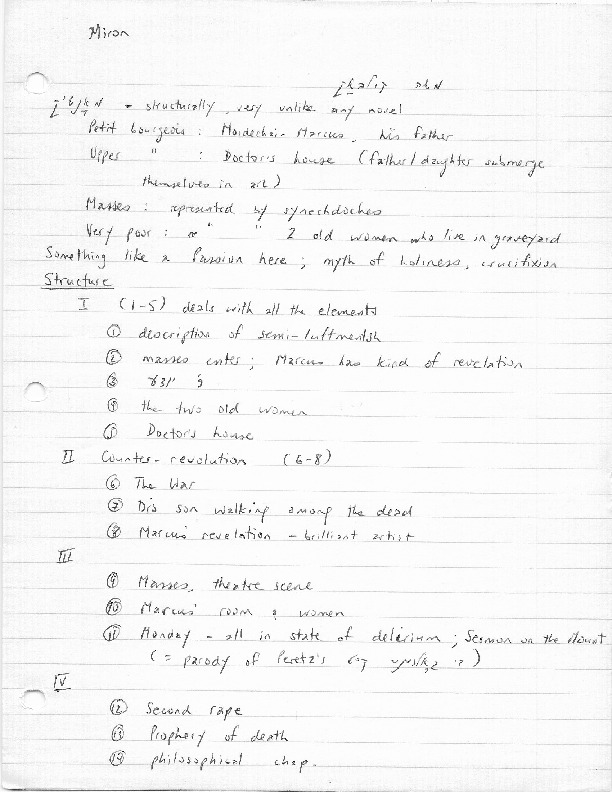 Miron
- structurally, very unlike any novel
Petit bourgeois : Mordechai-Marcus, his father
Upper " : Doctor's house (father/daughter submerge
themselves in art)
Masses : represented by synechdoches
Very poor : " " 2 old women who live in graveyard
Something like a Passion here ; myth of holiness, crucifixion
Structure
I (1-5) deals with all the elements
① description of semi-luftmentsh
② masses enter ; Marcus has kind of revelation
③
④ the two old women
⑤ Doctor's house
II Counter-revolution (6-8)
⑥ The War
⑦ Dr's son walking among the dead
⑧ Marcus' revelation - brilliant artist
III
⑨ Masses, theatre scene
⑩ Marcus' room & women
⑪ Monday - all in state of delirium ; Sermon on the Mount
( = parody of Peretz's )
IV
⑫ Second rape
⑬ Prophecy of death
⑭ philosophical chap.